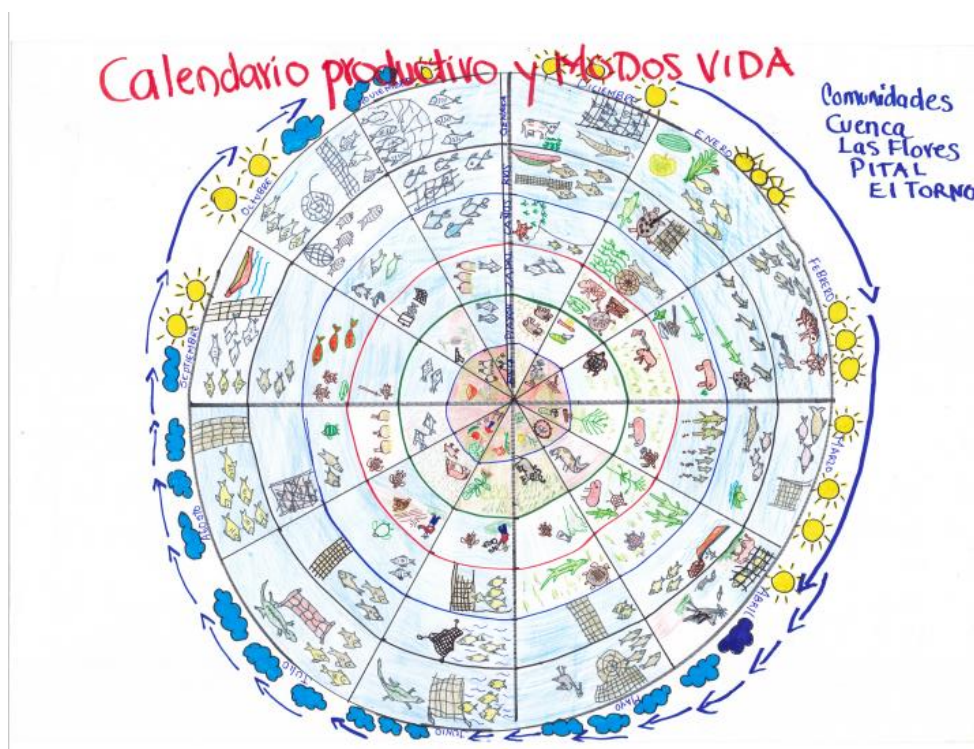 Calendario productivo y MODOS VIDA
Comunidades
Cuenca
Las Flores
PITAL
El TORNO
DICIEMBRE
ENERO
FEBRERO
MARZO
ABRIL
MAYO
JUNIO
JULIO
AGOSTO
SEPTIEMBRE
Octubre
NOVIEMBRE
CIENAGA